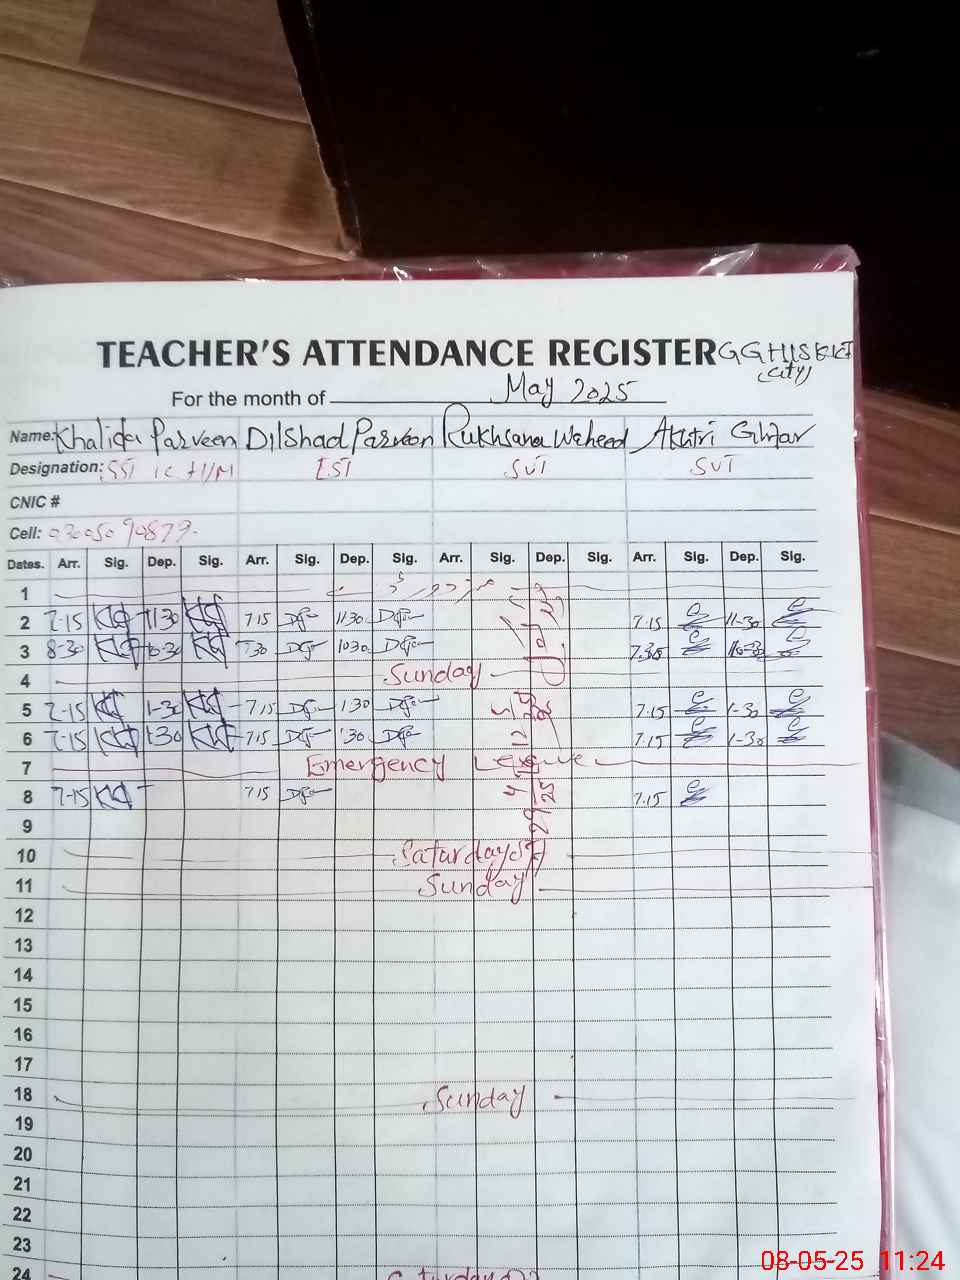 TEACHER'S ATTENDANCE REGISTER
(City)
For the month of May 2025
Name: Khalida Parveen Dilshad Parveen Rukhsana Waheed Akhtri Gulzar
Designation: SST I/C H/M EST SVT SVT
CNIC #
Cell:
Dates. Arr. Sig. Dep. Sig. Arr. Sig. Dep. Sig. Arr. Sig. Dep. Sig. Arr. Sig. Dep. Sig.
1
2 7-15 11-30 7.15 11.30 7.15 11-30
3 8-30 10-30 7.30 10.30 7.30 10-30
4 Sunday
5 7-15 1-30 7.15 1.30 7.15 1-30
6 7-15 1.30 7.15 1.30 7.15 1-30
7 Emergency Leave
8 7-15 7.15 7.15
9
10 Saturday
11 Sunday
12
13
14
15
16
17
18 Sunday
19
20
21
22
23
24 Saturday
08-05-25 11:24